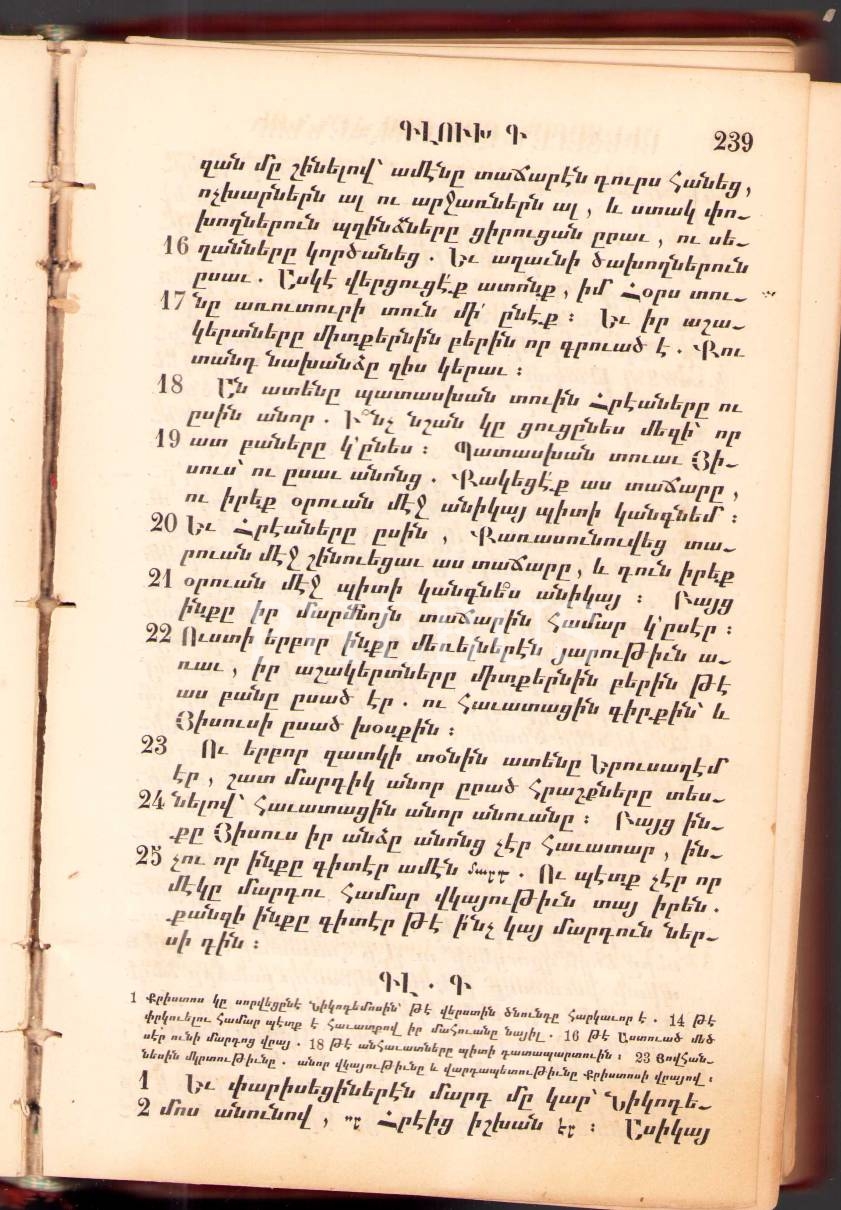 ԳԼՈՒԽ Գ 239
զան մը շինելով՝ ամէնը տաճարէն դուրս հանեց,
ոչխարներն ալ ու արջառներն ալ, և ստակ փո-
խողներուն պղինձները ցիրուցան ըրաւ, ու սե-
16 ղանները կործանեց. Եւ աղաւնի ծախողներուն
ըսաւ. Ըսկէ վերցուցէ՛ք ատոնք, իմ Հօրս տու-
17 նը առուտուրի տուն մի՛ ընէք։ Եւ իր աշա-
կերտները միտքերնին բերին որ գրուած է. Քու
տանդ նախանձը զիս կերաւ։
18 Ըն ատենը պատասխան տուին Հրէաները ու
ըսին անոր. Ի՞նչ նշան կը ցուցընես մեզի՝ որ
19 ատ բաները կ՚ընես։ Պատասխան տուաւ Յի-
սուս՝ ու ըսաւ անոնց. Քակեցէ՛ք աս տաճարը,
ու իրեք օրուան մէջ անիկայ պիտի կանգնեմ։
20 Եւ Հրէաները ըսին, Քառասունուվեց տա-
րուան մէջ շինուեցաւ աս տաճարը, և դուն իրեք
21 օրուան մէջ պիտի կանգնե՞ս անիկայ։ Բայց
ինքը իր մարմնոյն տաճարին համար կ՚ըսէր։
22 Ուստի երբոր ինքը մեռելներէն յարութիւն ա-
ռաւ, իր աշակերտները միտքերնին բերին թէ
աս բանը ըսած էր. ու հաւատացին գիրքին՝ և
Յիսուսի ըսած խօսքին։
23 Ու երբոր զատկի տօնին ատենը Երուսաղէմ
էր, շատ մարդիկ անոր ըրած հրաշքները տես-
24 նելով՝ հաւատացին անոր անուանը։ Բայց ին-
քը Յիսուս իր անձը անոնց չէր հաւատար, ին-
25 չու որ ինքը գիտէր ամէն մարդ. Ու պէտք չէր որ
մէկը մարդու համար վկայութիւն տայ իրեն.
քանզի ինքը գիտէր թէ ի՛նչ կայ մարդուն ներ-
սի դին։
ԳԼ. Գ
1 Քրիստոս կը սորվեցընէ Նիկոդեմոսին՝ թէ վերստին ծնունդը հարկաւոր է. 14 թէ
փրկուելու համար պէտք է հաւատքով իր մահուանը նայիլ. 16 թէ Աստուած մեծ
սէր ունի մարդոց վրայ. 18 թէ անհաւատները պիտի դատապարտուին։ 23 Յովհան-
նեսին մկրտութիւնը. անոր վկայութիւնը և վարդապետութիւնը Քրիստոսի վրայով։
1 Եւ փարիսեցիներէն մարդ մը կար՝ Նիկոդե-
2 մոս անունով, որ Հրէից իշխան էր։ Ըսիկայ